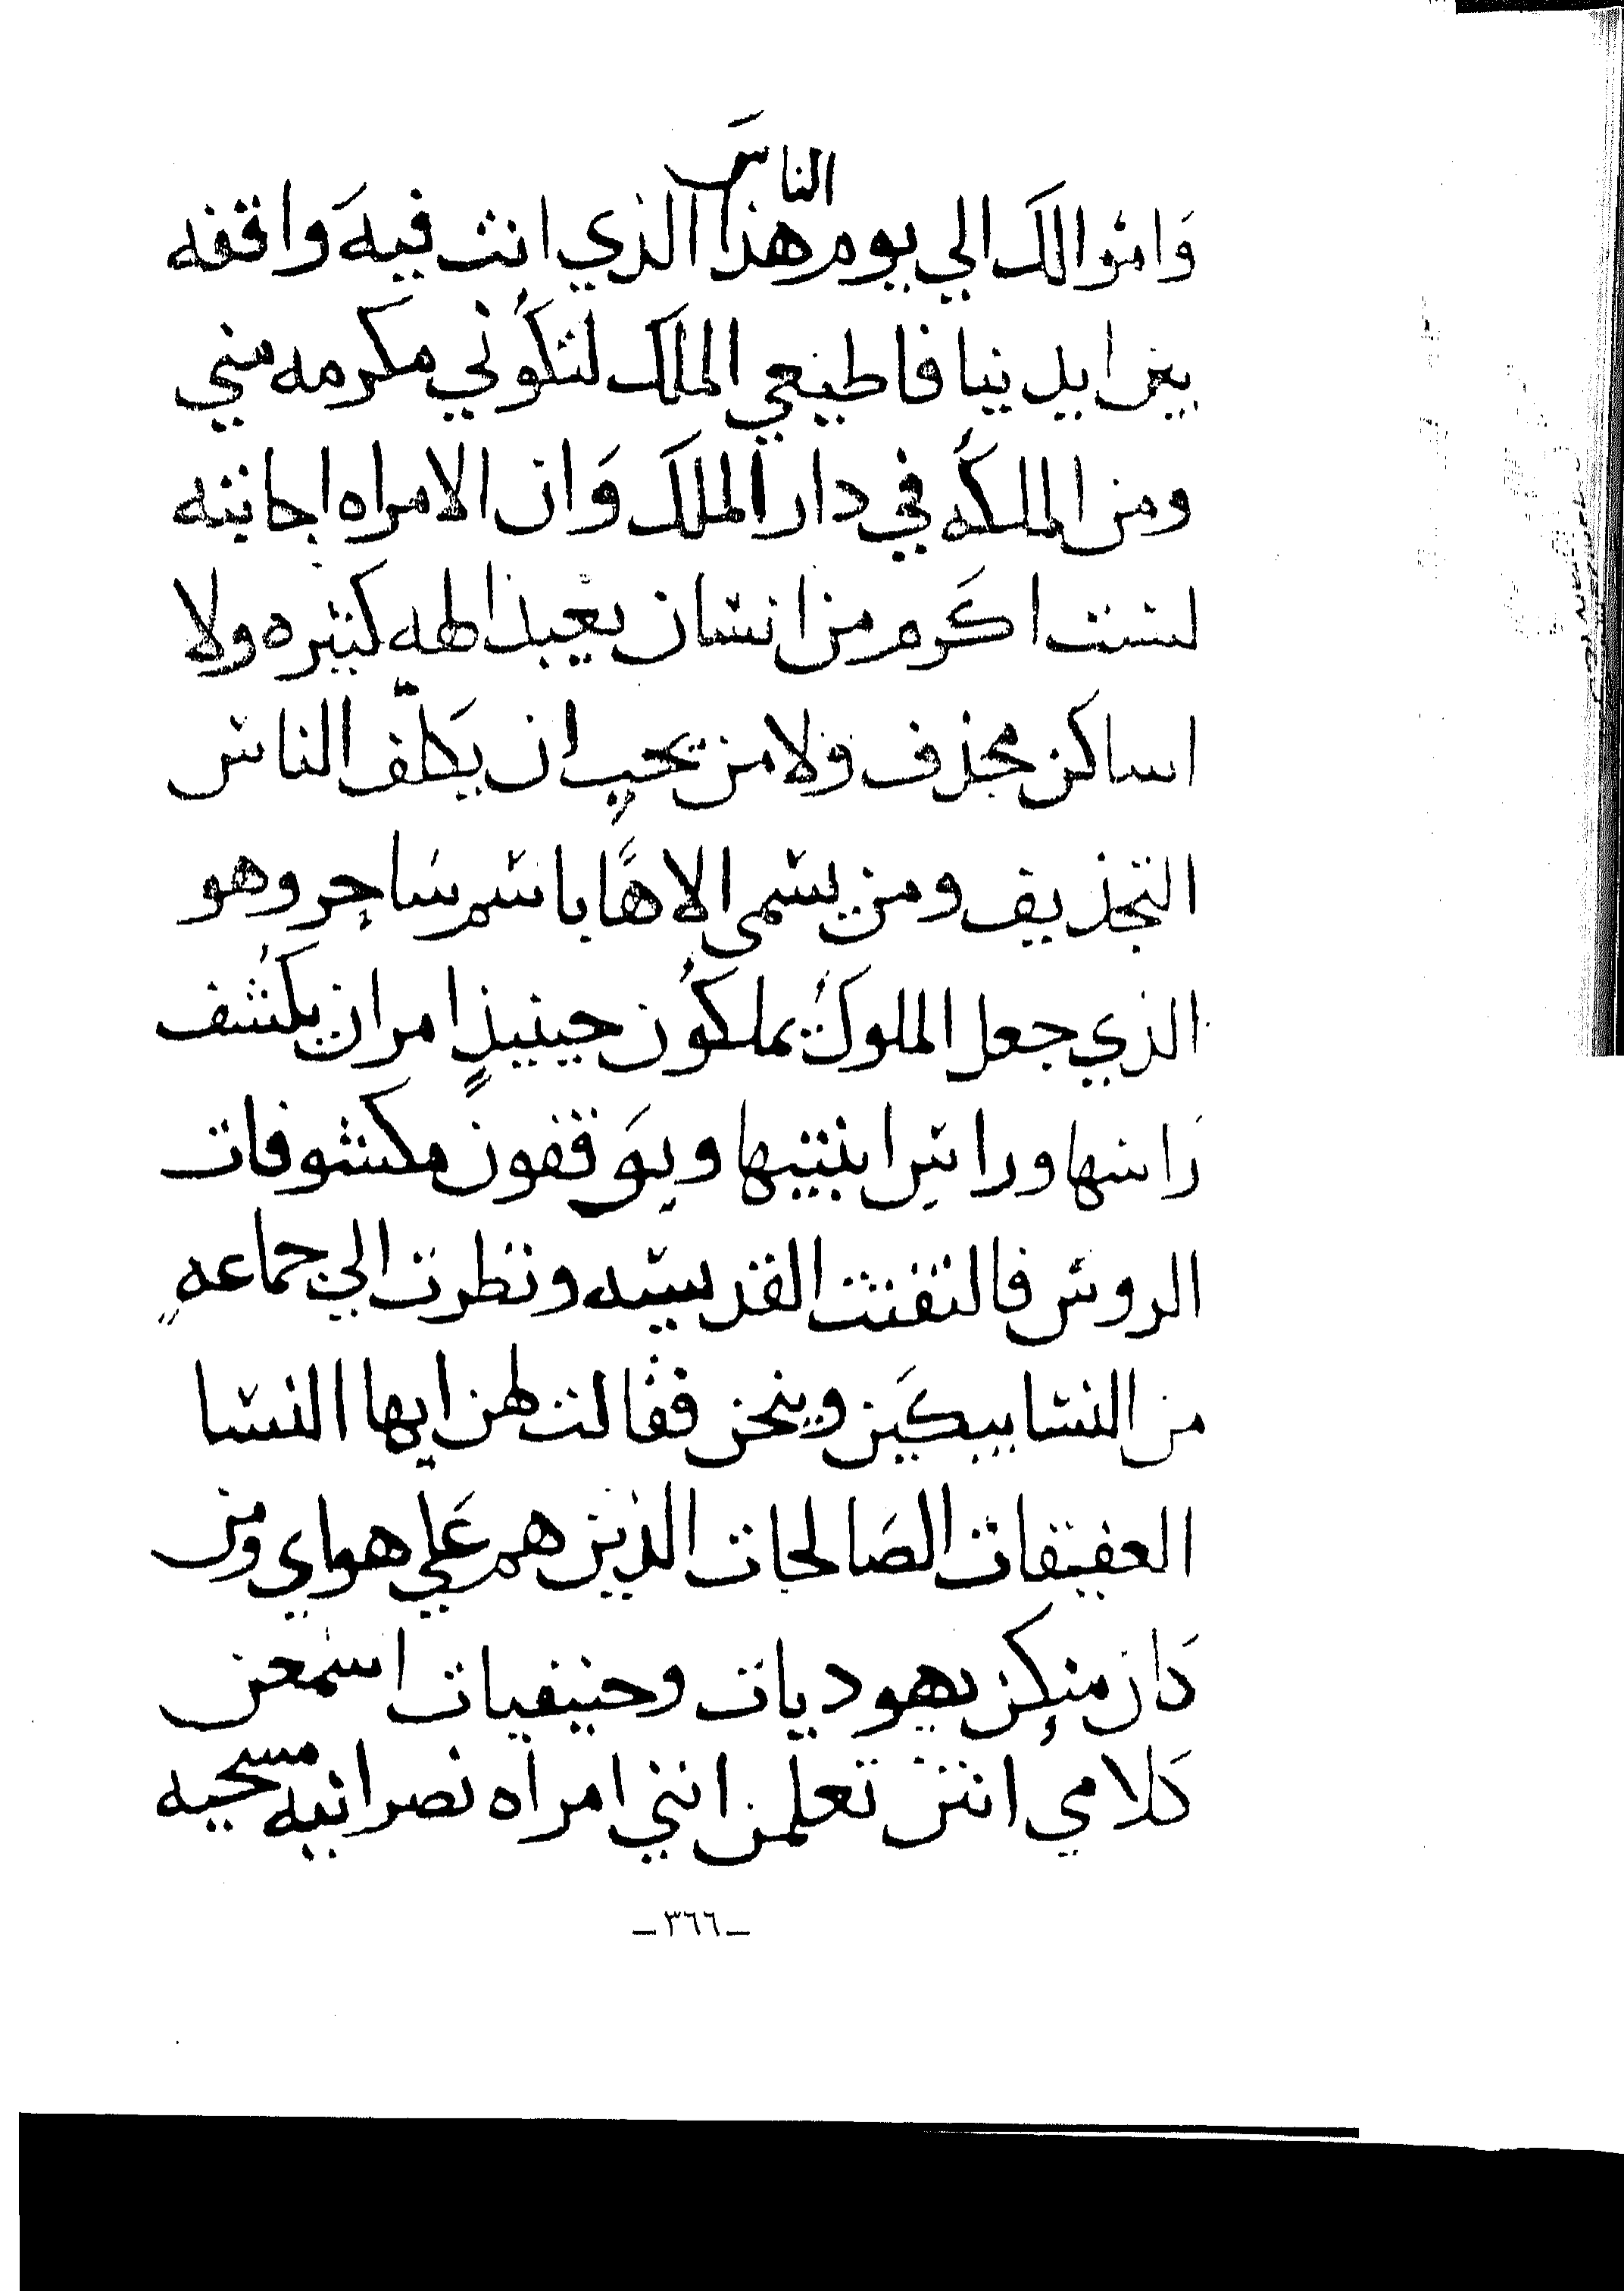 الناس
وامثوالك الي يوم هذا الذي انت فيه واقفه
بين ايدينا فاطيعي الملك لتكوني مكرمه مني
ومن الملكه في دار الملك وان الامراه اجابته
لست اكرم من انسان يعبد الهه كثيره ولا
اساكن مجذف ولا من يحب ان يكلف الناس
التجذيف ومن يسمى الاهًا باسم ساحر وهو
الذي جعل الملوك يملكون حينيذٍ امر ان يكشف
راسها وراس ابنتيها ويوقفون مكشوفات
الروس فالتفتت القديسه ونظرت الي جماعهٍ
من النسا يبكين وينحن فقالت لهن ايها النسا
العفيفات الصالحات الذين هم علي هواي ومن
كان منكن يهوديات وحنيفيات اسمعن
كلامي انتن تعلمن انني امراه نصرانيه مسحيه
ـ٣٦٦ـ